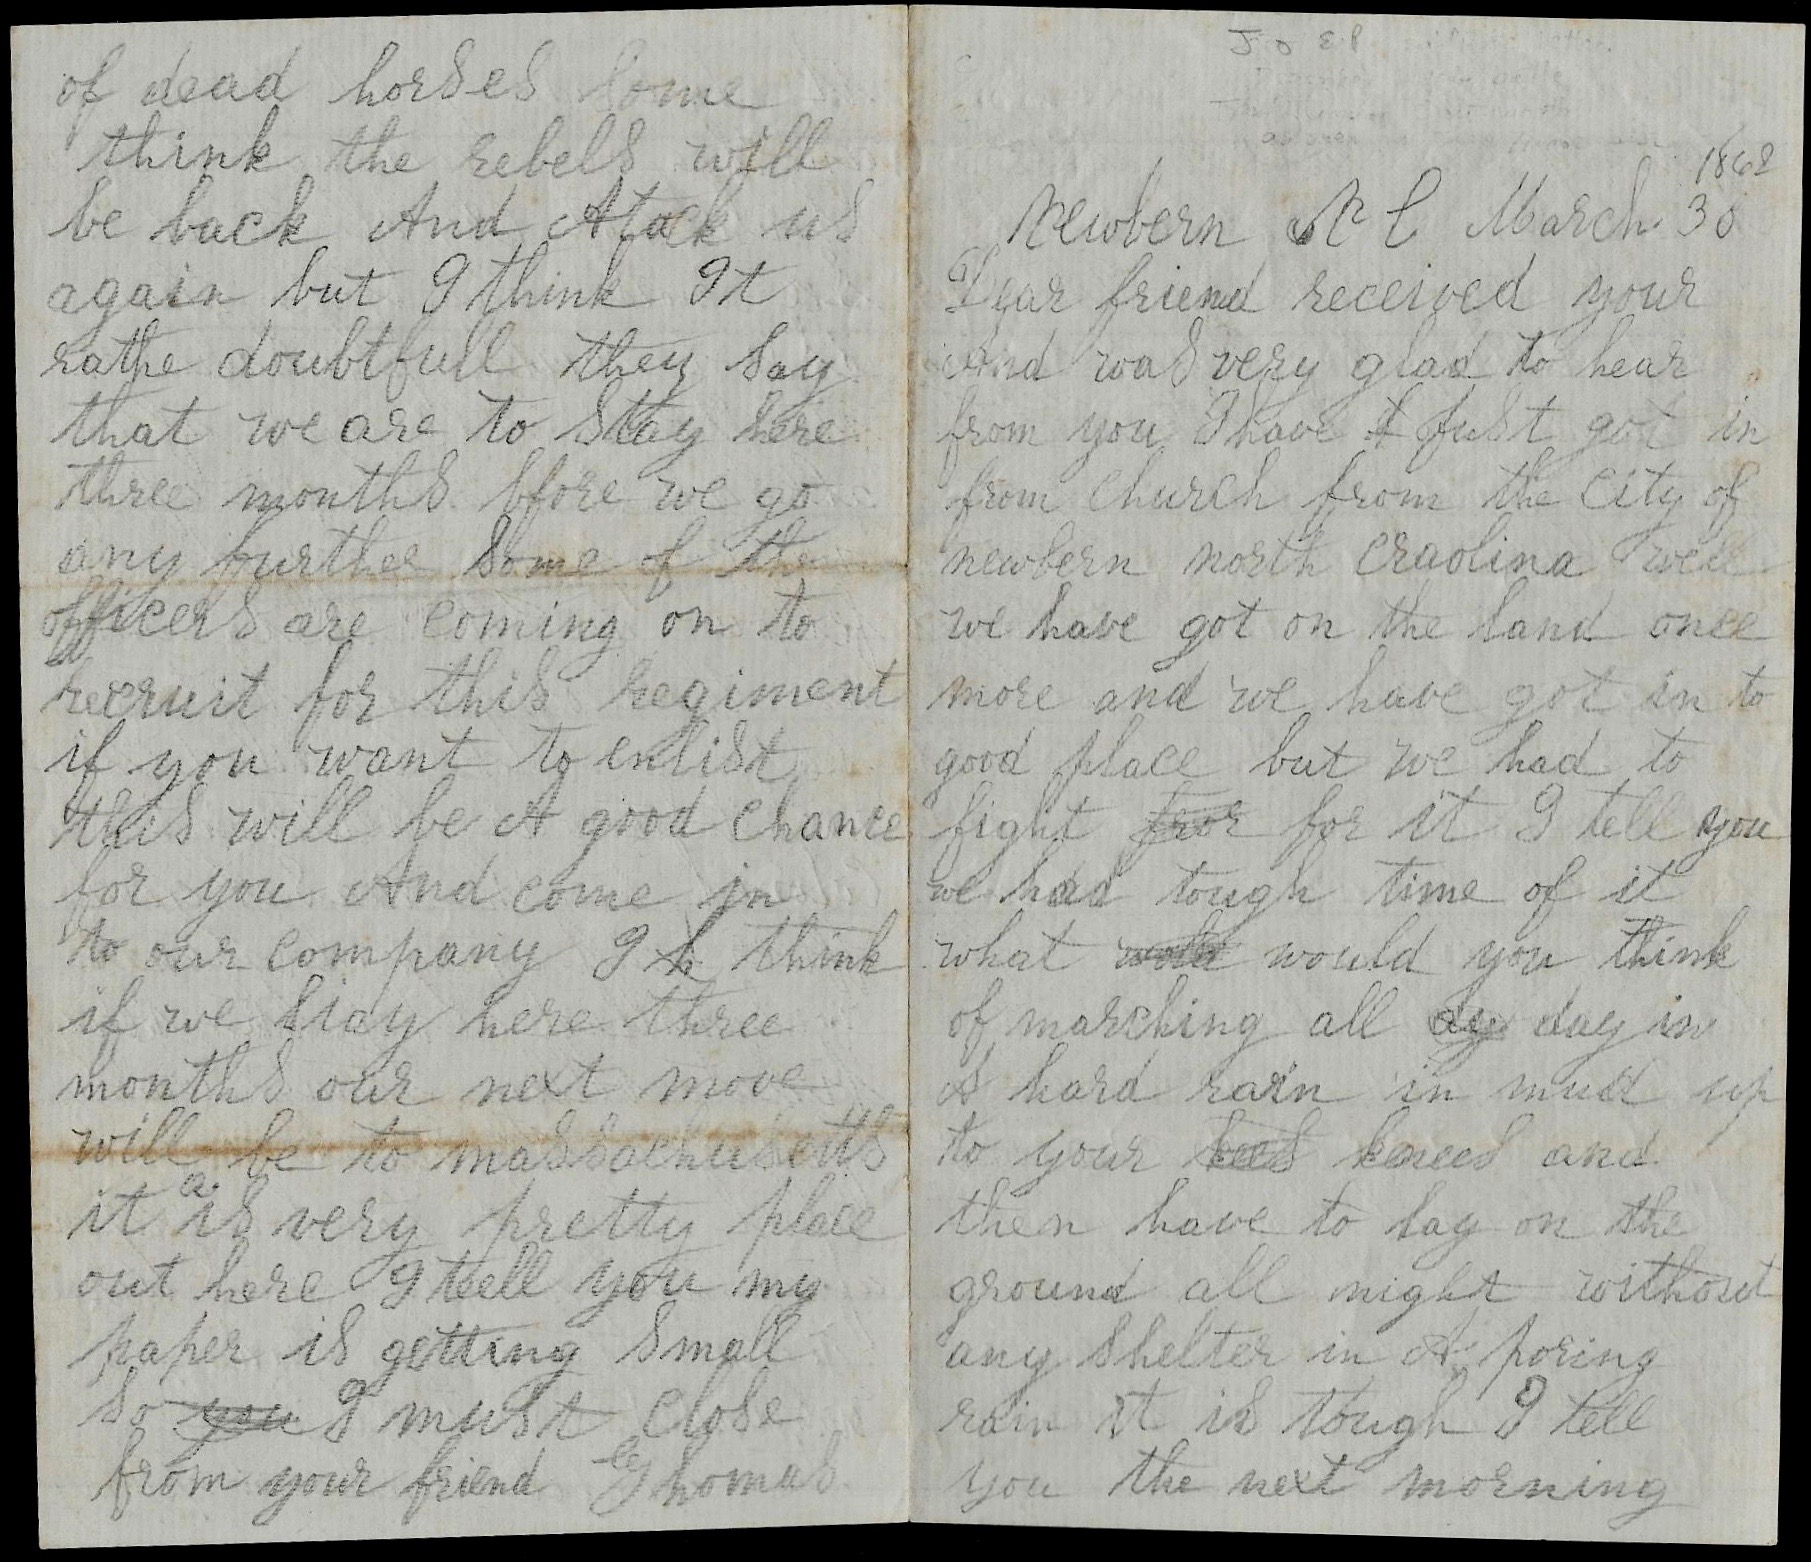 1862
Newbern N C March 30
Dear friend received your
And was very glad to hear
from you I have just got in
from church from the City of
newbern north Craolina well
we have got on the land once
more and we have got in to
good place but we had to
fight fror for it I tell you
we had tough time of it
what wold would you think
of marching all dy day in
A hard rain in mud up
to your kees knees and
then have to lay on the
ground all night without
any shelter in A poring
rain it is tough I tell
you the next morning
of dead horses Some
think the rebels will
be back And Atack us
again but I think It
rathe doubtfull they say
that we are to stay here
three months bfore we go
any further some of the
officers are coming on to
recruit for this regiment
if you want to enlist
this will be A good chance
for you And come in
to our company I h think
if we stay here three
months our next move
will be to massachusetts
it is a very pretty place
out here I tell you my
paper is getting small
so you I must close
from your friend Thomas